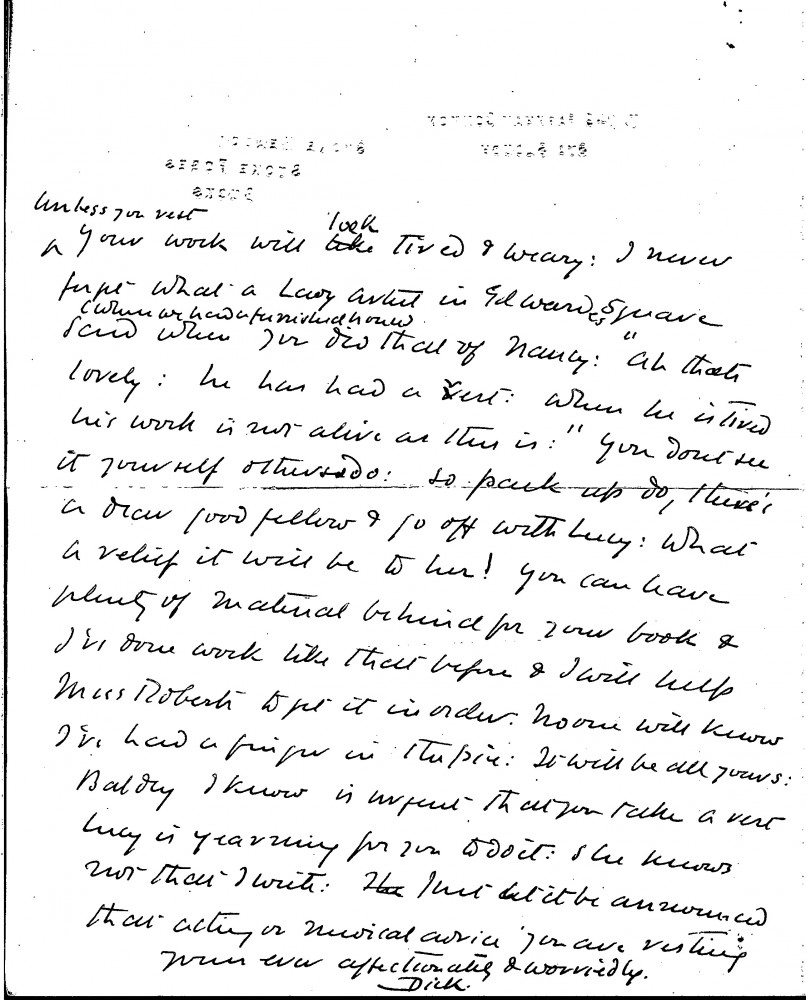 Unless you rest
look
^ Your work will like tired & weary: I never
forget what a Lady artist in Edwardes Square
(when we had a furnished house)
said when you did that of Nancy: "Ah thats
lovely: he has had a rest: when he is tired
his work is not alive as this is:" You dont see
it yourself others do: so pack up do, there's
a dear good fellow & go off with Lucy: What
a relief it will be to her! You can leave
plenty of material behind for your book &
I've done work like that before & I will help
Miss Roberts to get it in order. No one will know
I've had a finger in the pie: It will be all yours:
Baldry I know is urgent that you take a rest
Lucy is yearning for you to do it: She knows
not that I write: Just let it be announced
that acting on medical advice you are resting
yours ever affectionately & worriedly.
Dick.